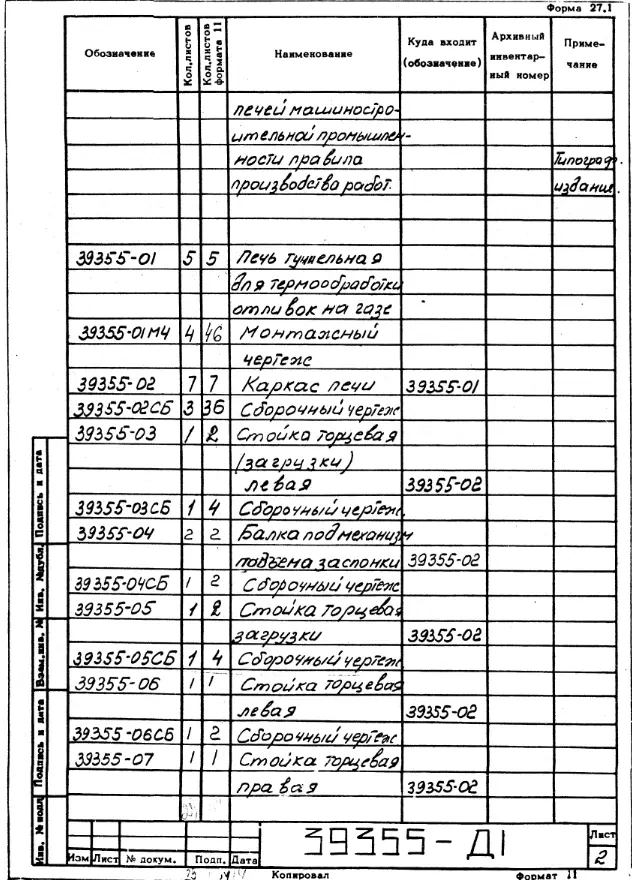 Форма 27.1
Обозначение Кол.листов Кол.листов формата 11 Наименование Куда входит (обозначение) Архивный инвентар-ный номер Приме-чание
печей машиностро-
ительной промышлен-
ности правила Типограф.
производства работ. издание.
39355-01 5 5 Печь туннельная
для термообработки
отливок на газе
39355-01МЧ 4 46 Монтажный
чертеж
39355-02 7 7 Каркас печи 39355-01
39355-02СБ 3 36 Сборочный чертеж
39355-03 1 2 Стойка торцевая
(загрузки)
левая 39355-02
39355-03СБ 1 4 Сборочный чертеж.
39355-04 2 2 Балка под механизм
подъема заслонки 39355-02
39355-04СБ 1 2 Сборочный чертеж
39355-05 1 2 Стойка торцевая
загрузки 39355-02
39355-05СБ 1 4 Сборочный чертеж
39355-06 1 1 Стойка торцевая
левая 39355-02
39355-06СБ 1 2 Сборочный чертеж
39355-07 1 1 Стойка торцевая
правая 39355-02
Подпись и дата
Инв. №дубл.
Взам.инв. №
Подпись и дата
Инв. № подл
39355-Д1
Лист
2
Изм Лист № докум. Подп. Дата
Копировал Формат 11